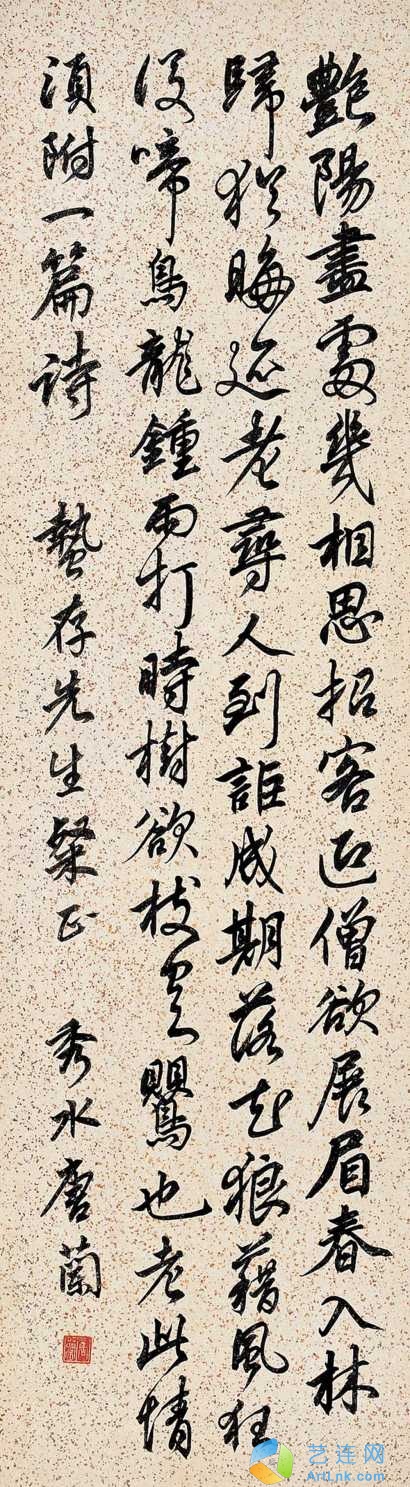 艷陽盡處幾相思招客迎僧欲展眉春入林
歸猶晦迹老尋人到詎成期落花狼藉風狂
後啼鳥龍鍾雨打時樹欲枝空鸎也老此情
須附一篇詩
蟄存先生粲正
秀水唐蘭
艺连网
Artlnk.com